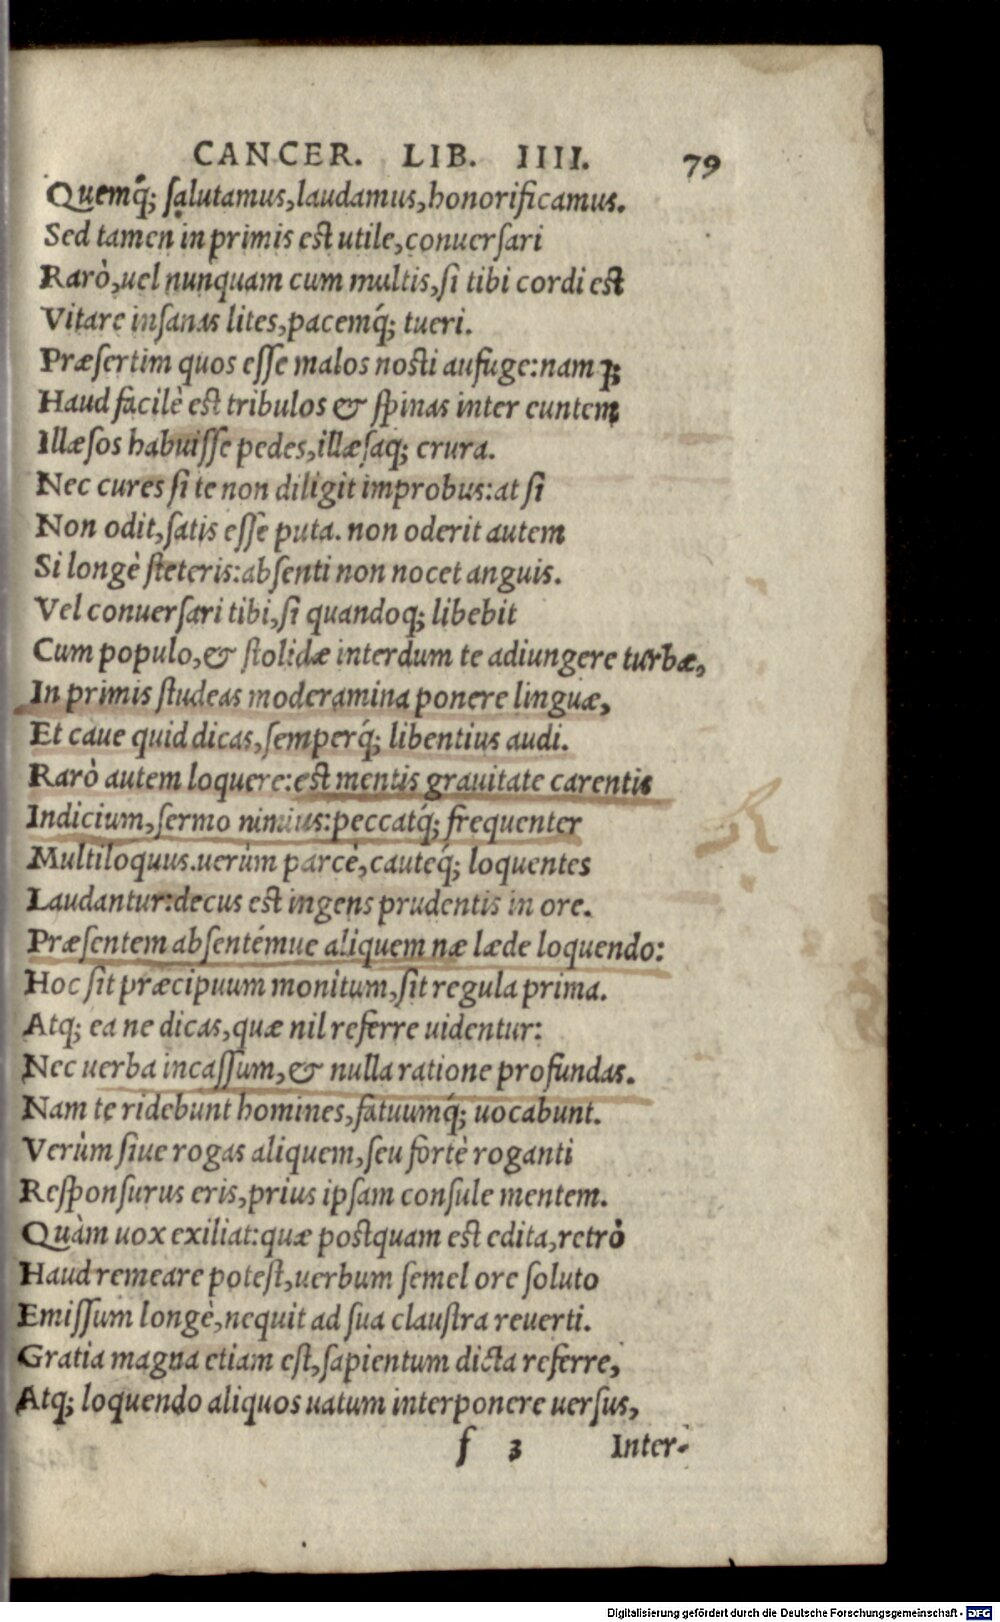 CANCER. LIB. IIII. 79
Quemq́; ſalutamus, laudamus, honorificamus.
Sed tamen in primis est utile, conuerſari
Rarò, uel nunquam cum multis, ſi tibi cordi est
Vitare inſanas lites, pacemq́; tueri.
Præſertim quos eſſe malos nosti aufuge: nam ꝑ;
Haud facilè est tribulos & ſpinas inter euntem
Illæſos habuiſſe pedes, illæſaq; crura.
Nec cures ſi te non diligit improbus: at ſi
Non odit, ſatis eſſe puta. non oderit autem
Si longè ſteteris: abſenti non nocet anguis.
Vel conuerſari tibi, ſi quandoq; libebit
Cum populo, & ſtolidæ interdum te adiungere turbæ,
In primis ſtudeas moderamina ponere linguæ,
Et caue quid dicas, ſemperq́; libentius audi.
Rarò autem loquere: est mentis grauitate carentis
Indicium, ſermo nimius: peccatq́; frequenter
Multiloquus. uerùm parcè, cauteq́; loquentes
Laudantur: decus est ingens prudentis in ore.
Præſentem abſentémue aliquem næ læde loquendo:
Hoc ſit præcipuum monitum, ſit regula prima.
Atq; ea ne dicas, quæ nil referre uidentur:
Nec uerba incaſſum, & nulla ratione profundas.
Nam te ridebunt homines, fatuumq́; uocabunt.
Verùm ſiue rogas aliquem, ſeu fortè roganti
Reſponſurus eris, prius ipſam conſule mentem.
Quàm uox exiliat: quæ postquam est edita, retrò
Haud remeare poteſt, uerbum ſemel ore ſoluto
Emiſſum longè, nequit ad ſua clauſtra reuerti.
Gratia magna etiam eſt, ſapientum dicta referre,
Atq; loquendo aliquos uatum interponere uerſus,
f 3 Inter-
Digitalisierung gefördert durch die Deutsche Forschungsgemeinschaft - DFG